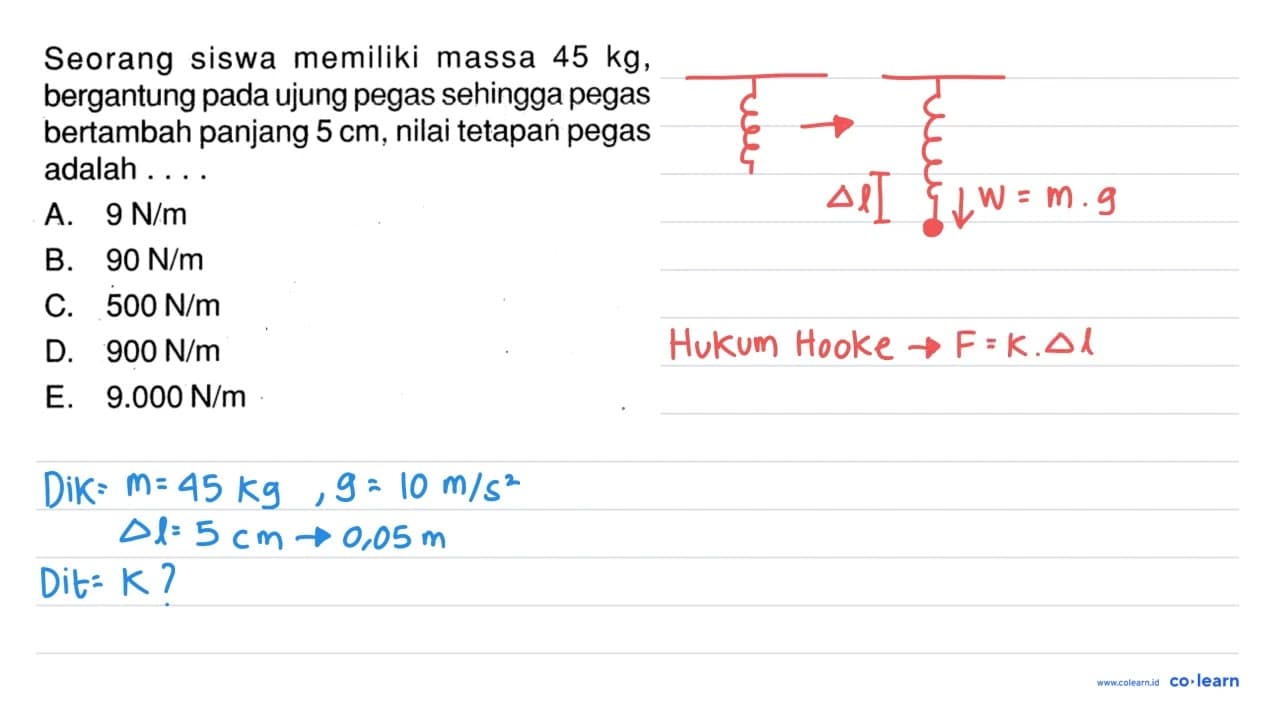 Seorang siswa memiliki massa 45 kg,
bergantung pada ujung pegas sehingga pegas
bertambah panjang 5 cm, nilai tetapan pegas
adalah . . . .
A. 9 N/m
B. 90 N/m
C. 500 N/m
D. 900 N/m
E. 9.000 N/m
Δl
W = m . g
Hukum Hooke → F = K . Δl
Dik= m = 45 kg , g = 10 m/s²
Δl = 5 cm → 0,05 m
Dit= K ?
www.colearn.id co·learn